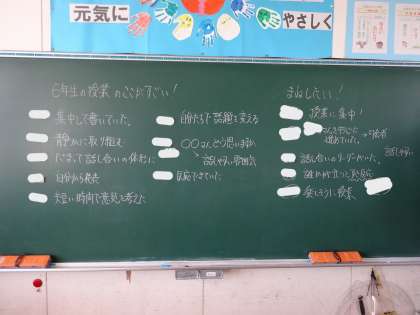 元気に
やさしく
6年生の授業のここがすごい!
集中して書いていた。
静かに取り組む
だまって話し合いの体形に
自分から発表
短い時間で意見を考えた
自分たちで話題を変える
〇〇さんどう思いますか
話しやすい雰囲気
反応できていた。
まねしたい!
授業に集中!
話し合いのリーダーがいた。
話しやすい
誰かが立ったら反応
楽しそうに授業